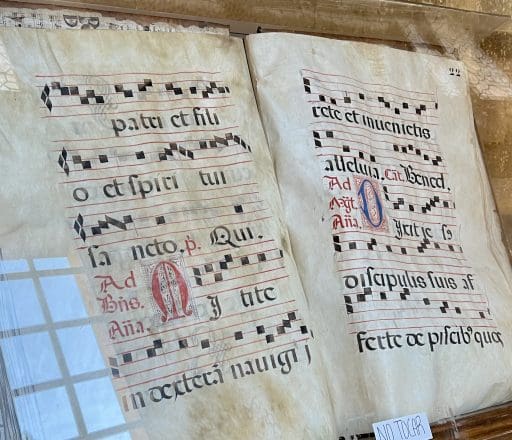 patri et fili
o et spiri tui
sa ncto. p. Qui.
Ad
Bñs.
Aña.
M J tite
in dexterã nauigi J
22
rete et inuenietis
alleluia. Cãt. Bened.
Ad
Agt.
Aña.
D Jcit ie sº
discipulis suis af
ferte de piscibº quos
NO TOCAR